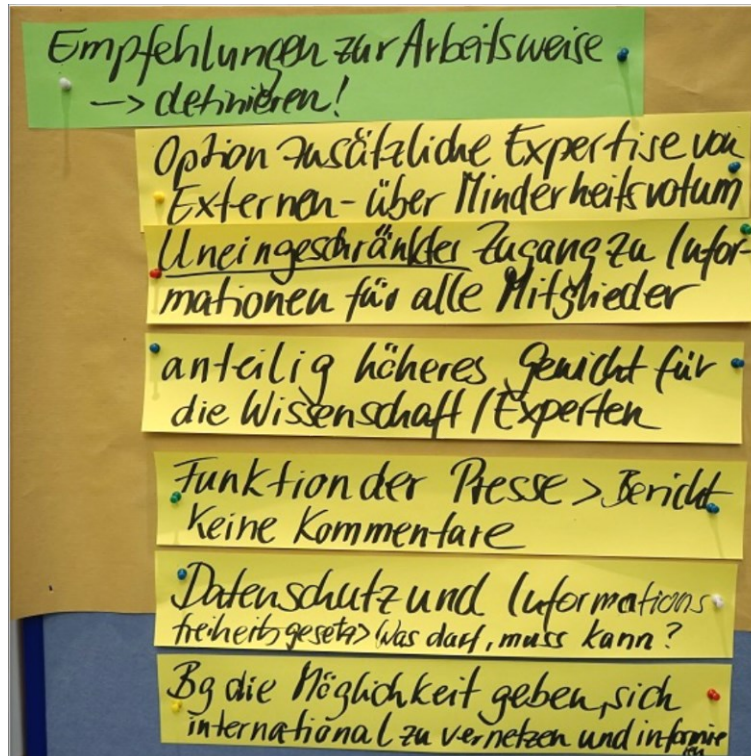 Empfehlungen zur Arbeitsweise
-> definieren!
Option zusätzliche Expertise von
Externen - über Minderheitsvotum
Uneingeschränkter Zugang zu Infor-
mationen für alle Mitglieder
anteilig höheres Gewicht für
die Wissenschaft / Experten
Funktion der Presse > Bericht
Keine Kommentare
Datenschutz und Informations
freiheitsgesetz > Was darf, muss kann?
Bg die Möglichkeit geben, sich
international zu vernetzen und informie
ren